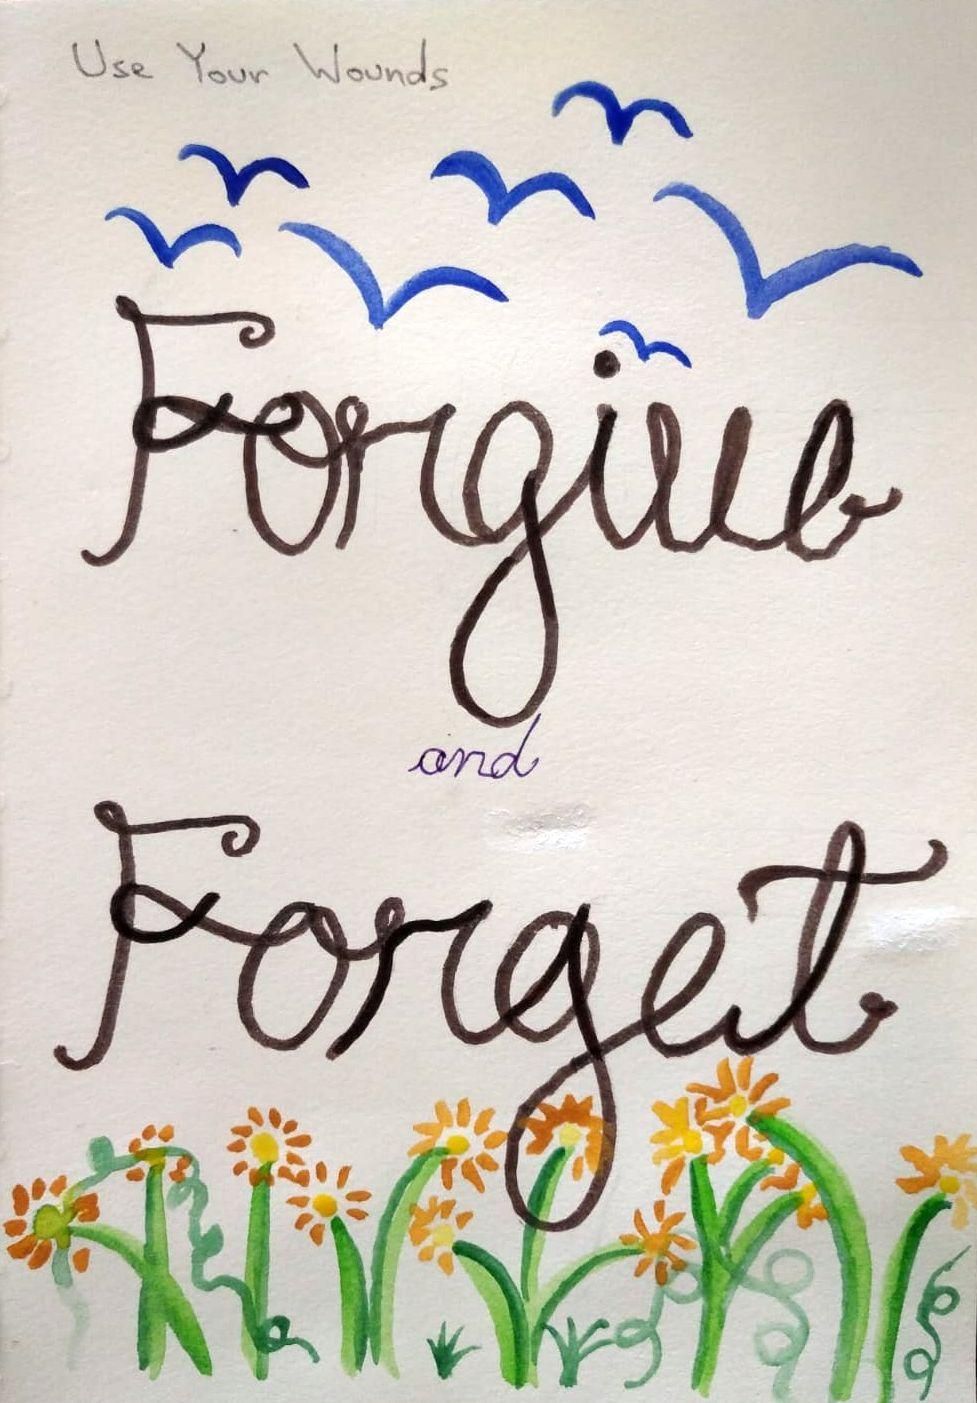 Use Your Wounds
Forgive
and
Forget